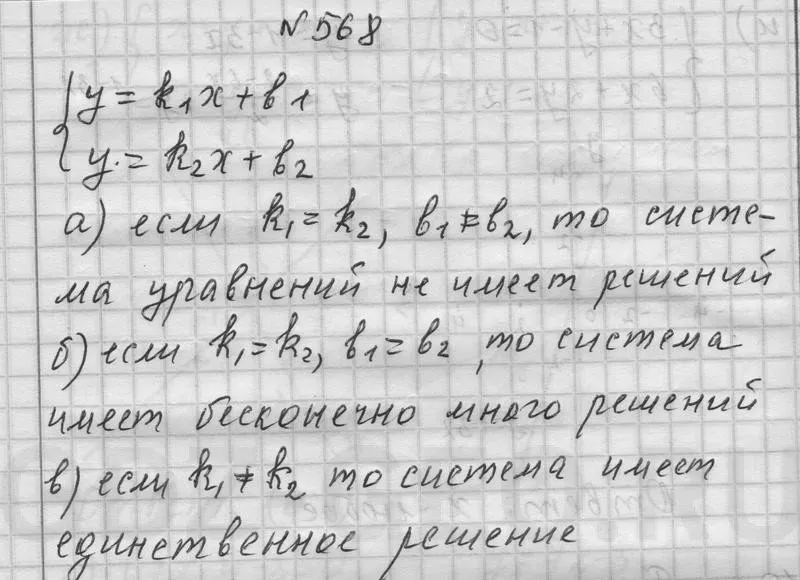 N 568
y = k₁x + в₁
y = k₂x + в₂
а) если k₁ = k₂, в₁ ≠ в₂, то систе-
ма уравнений не имеет решений
б) если k₁ = k₂, в₁ = в₂, то система
имеет бесконечно много решений
в) если k₁ ≠ k₂ то система имеет
единственное решение